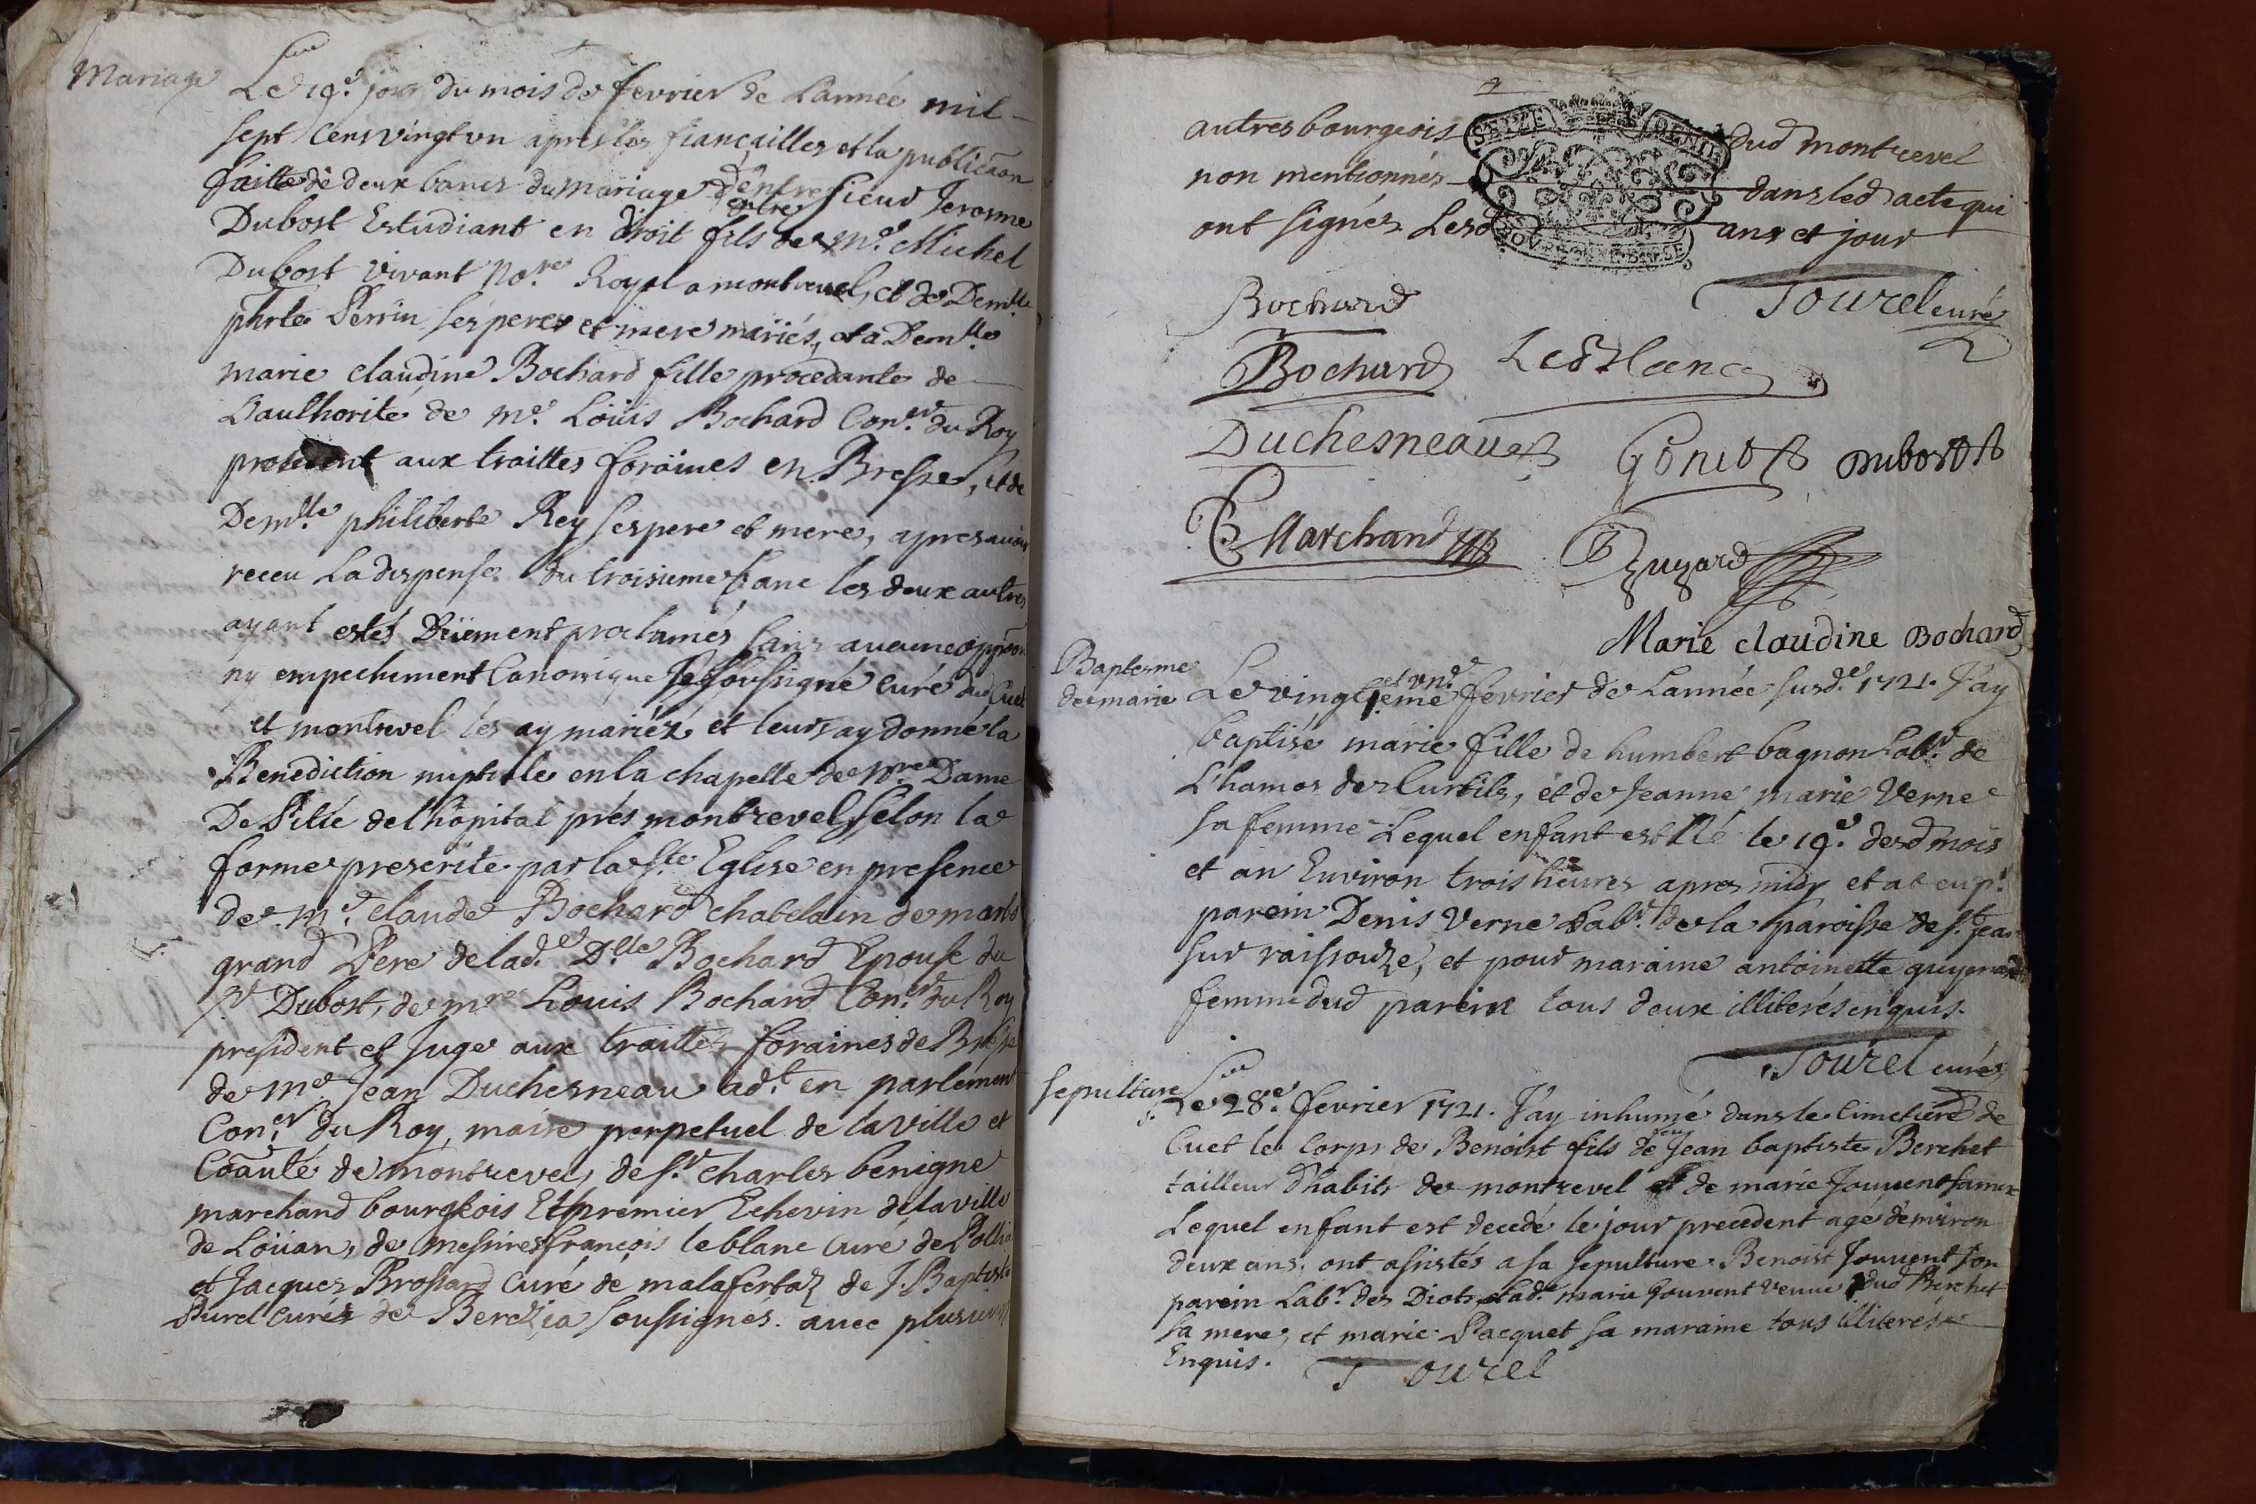 Mariage
Le 19.e jour du mois de fevrier de Lannée mil
sept cens vingt vn apres les fiançailles et la publicaon
faitte de deux bancs du mariage d'entre sieur Jerosme
Dubost Estudiant en droit fils de Me. Michel
Dubost vivant No.re Royal a montrevel, et de Dem.lle
phlte Perrin ses pere et mere mariés, et a Dem.lle
marie claudine Bochard fille procedante de
Lauthorité de Me. Loüis Bochard Con.er du Roy
president aux traittes foraines en Bresse, et de
Dem.lle philiberte Rey ses pere et mere, apres avoir
receu La dispense du troisieme banc les deux autres
ayant estés Düement proclamés sans aucune opp.on
ny empechement Canonique Je soussigné curé de Cuet
et montrevel les ay mariéz et leurs ay donné la
Benediction nuptiale en la chapelle de Nre Dame
De Pitié de l'hôpital prés montrevel, selon la
forme prescrite par la Ste. Eglise en presence
de Me. claude Bochard chatelain de
grand Pere de lad.e D.lle Bochard Epouse du
Sr Dubost, de m.re Louis Bochard Con.er du Roy
president et Juge aux traittes foraines de Bresse
de Me Jean Duchesneau ad.t en parlement
Con.er du Roy, maire perpetuel de la ville et
Coãuté de montrevel, de sr. charles benigne
marchand bourgeois Et premier Echevin de la ville
de Loüan, de messires françois leblanc curé de
et Jacques Brossard Curé de malafertaz de J. Baptiste
curés de soussignés avec plusieurs
autres bourgeois dud montrevel
non mentionnés dans led acte qui
ont signés Lesd ans et jour
SEIZE DENIE
Bochard
Tourel curé
Bochard
LeBlanc
Duchesneau
Gonod
Dubost
Marchand
Marie claudine Bochard
Baptesme
de marie
Le vingt et vn.e fevrier de Lannée susd.e 1721. J'ay
baptisé marie fille de humbert bagnon Lab.r de
L'hamos des Curtils, et de Jeanne marie Verne
sa femme Lequel enfant est Né le 19.e desd mois
et an Environ trois heures apres midy et at eu p.r
parein Denis Verne Lab.r de la paroisse de S.t Jean
sur raissouze, et pour maraine antoinette
femme dud parein tous deux illiterés enquis.
Tourel curé
sepulture
Le 28.e fevrier 1721. J'ay inhumé dans le Cimetiere de
Cuet le corps de Benoist fils de feu Jean baptiste Berchet
tailleur d'habits de montrevel et de marie Jouvent sa
Lequel enfant est decedé le jour precedent agé d'environ
deux ans. ont assistés a sa sepulture Benoist Jouvent son
parein Lab.r des Diots, et lad.e marie Jouvent veuve dud Berchet
sa mere, et marie Pacquet sa maraine tous illiterés
Enquis. Tourel